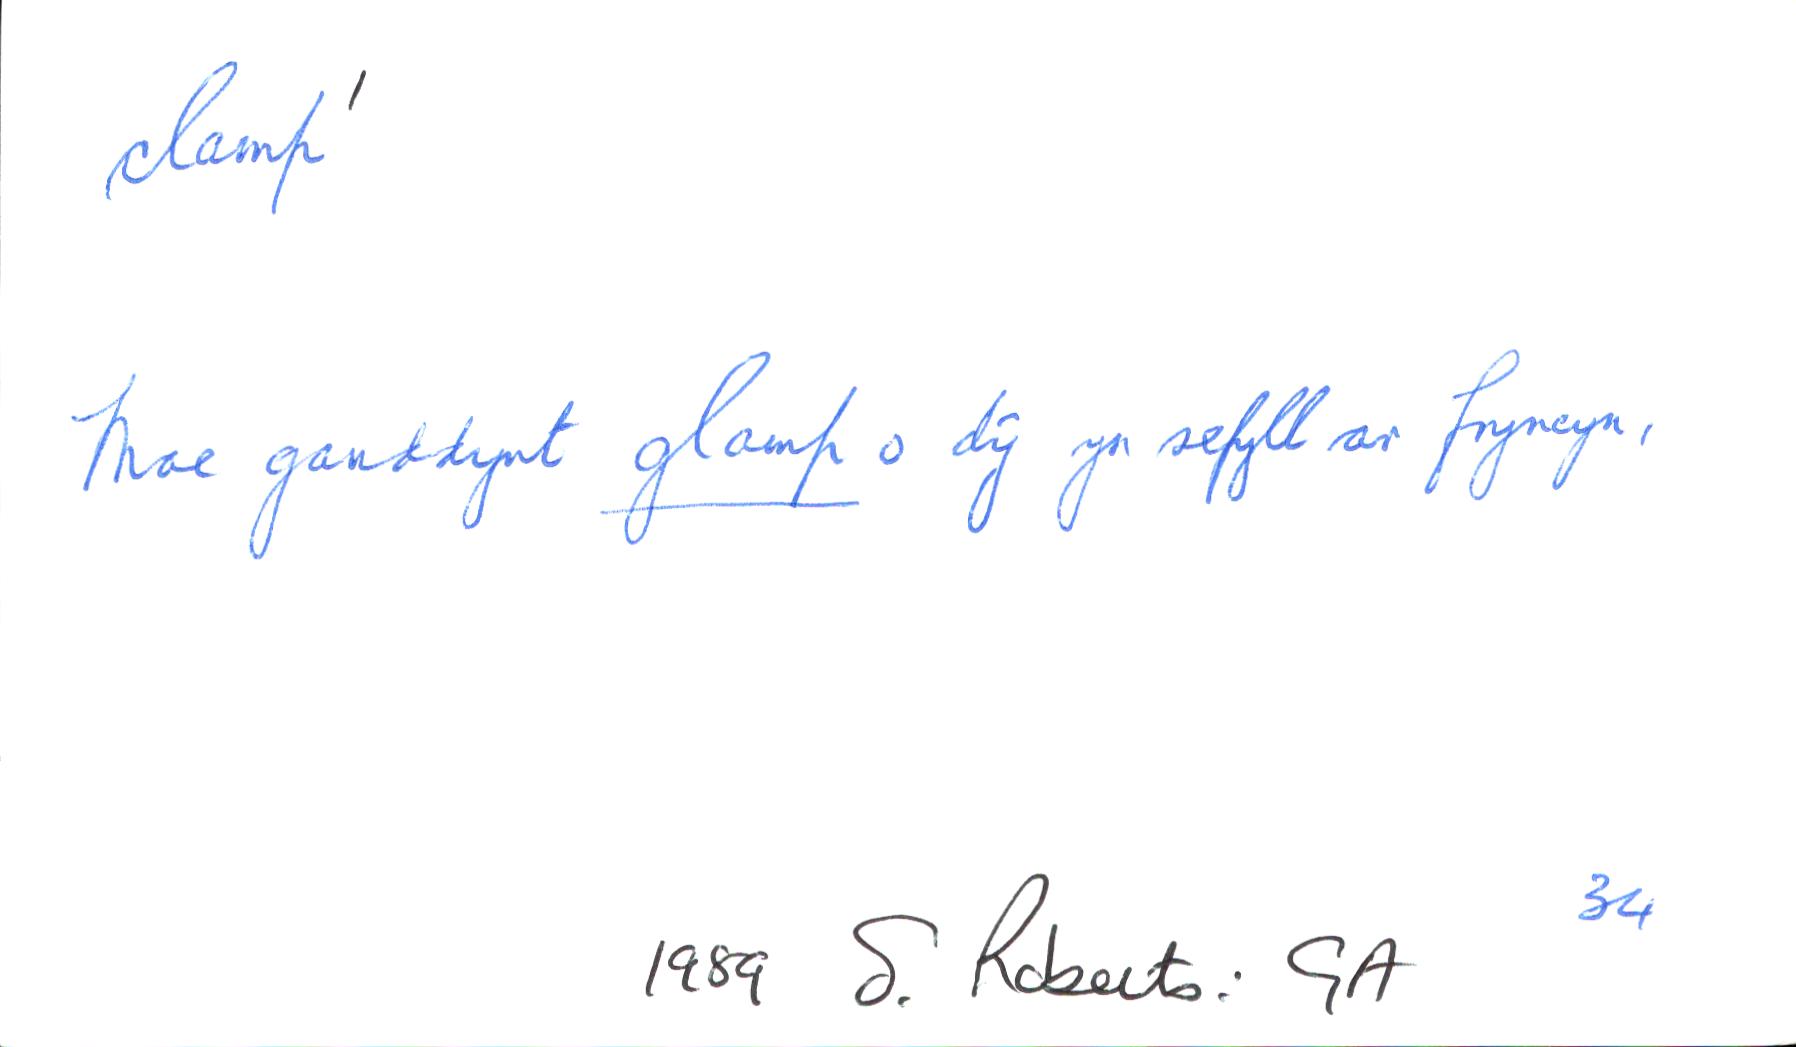 clamp¹
Mae ganddynt glamp o dŷ yn sefyll ar fryncyn,
34
1989 S. Roberts: GA